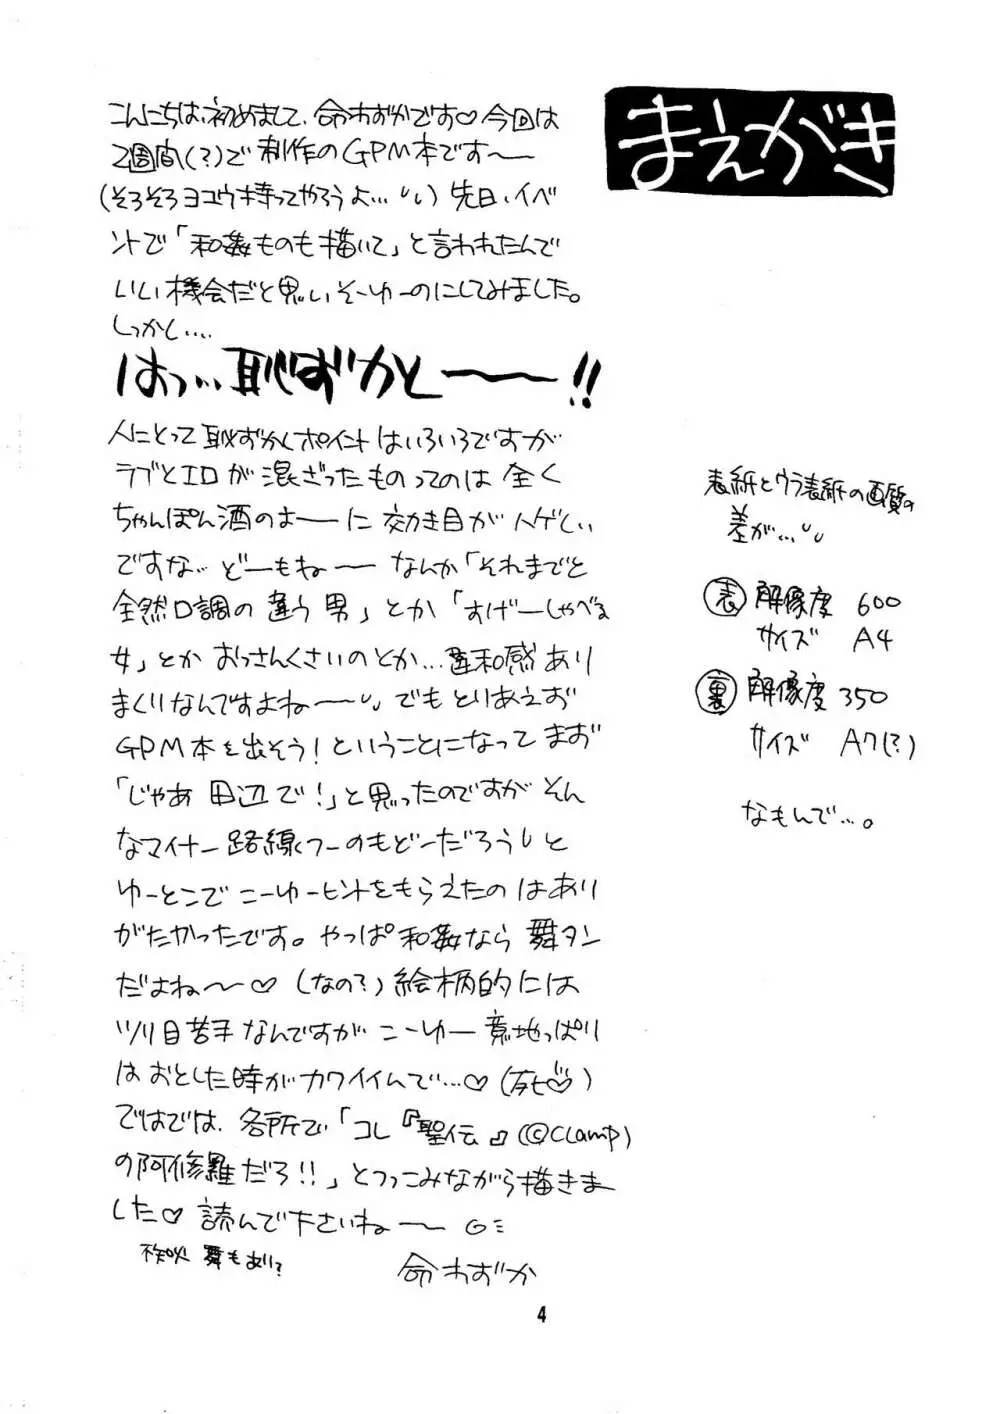 まえがき
こんにちは、初めまして、命わずかです♡今回は
2週間(?)で制作のGPM本です〜〜
(そろそろヨユウ持ってやろうよ…) 先日、イベ
ントで「和姦ものも描いて」と言われたんで
いい機会だと思いそーゆーのにしてみました。
しっかし....
はっ…恥ずかし〜〜!!
人によって恥ずかしポイントはいろいろですが
ラブとエロが混ざったものってのは全く
ちゃんぽん酒のよーに効き目がハゲしい
ですな… どーもね〜 なんか「それまでと
全然口調の違う男」とか「すげーしゃべる
女」とかおっさんくさいのとか…違和感あり
まくりなんですよね〜〜 でもとりあえず
GPM本を出そう!ということになってまず
「じゃあ田辺で!」と思ったのですがそん
なマイナー路線つーのもどーだろう と
ゆーとこでこーゆーヒントをもらえたのはあり
がたかったです。やっぱ和姦なら舞タン
だよね〜〜♡ (なの?)絵柄的には
ツリ目苦手なんですがこーゆー意地っぱり
はおとした時がカワイイんで…♡(死♡)
ではでは、各所で「コレ『聖伝』(©CLAMP)
の阿修羅だろ!!」とつっこみながら描きま
した♡ 読んで下さいね〜〜
不知火舞もあり?
命わずか
表紙とウラ表紙の画質の
差が…
表 解像度 600
サイズ A4
裏 解像度 350
サイズ A7(?)
なもんで…。
4